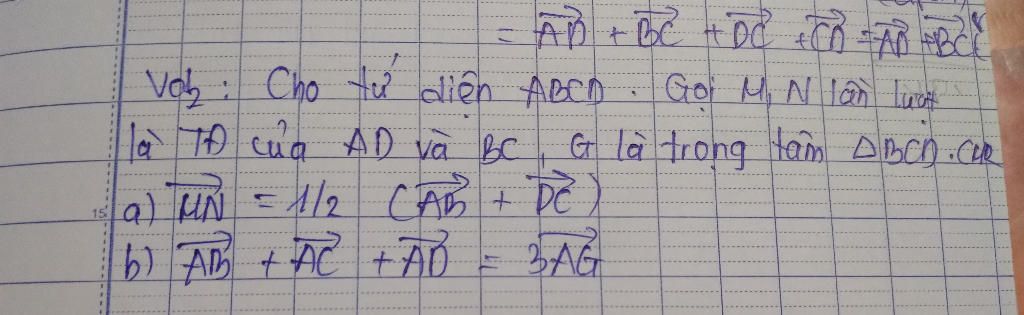 = AD + BC + DC + CD = AD + BC
Vd2 : Cho tứ diện ABCD . Gọi M, N lần lượt
là TĐ của AD và BC , G là trọng tâm ΔBCD . CMR
15 a) MN = 1/2 (AB + DC)
b) AB + AC + AD = 3AG